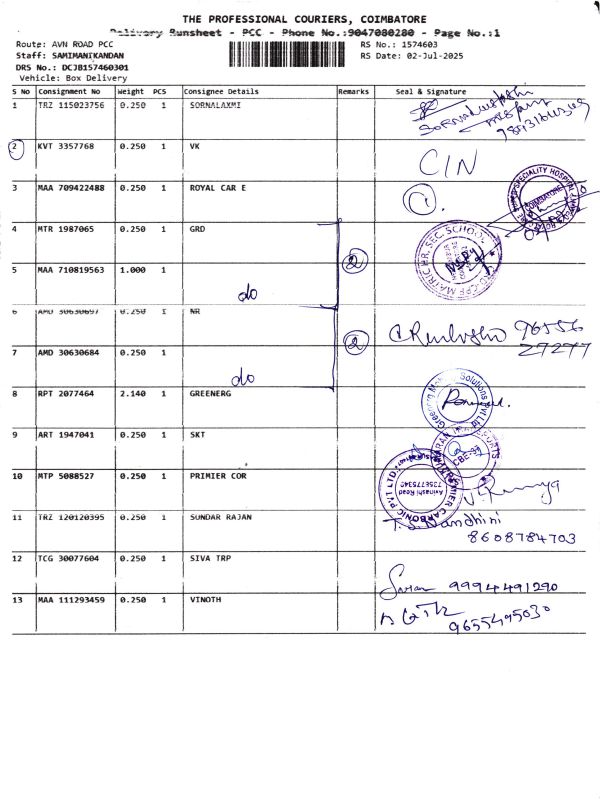 THE PROFESSIONAL COURIERS, COIMBATORE
Delivery Runsheet - PCC - Phone No.:9047080280 - Page No.:1
Route: AVN ROAD PCC
RS No.: 1574603
Staff: SAMIMANIKANDAN
RS Date: 02-Jul-2025
DRS No.: DCJB157460301
Vehicle: Box Delivery
S No Consignment No Weight PCS Consignee Details Remarks Seal & Signature
1 TRZ 115023756 0.250 1 SORNALAXMI
2 KVT 3357768 0.250 1 VK CIN
3 MAA 709422488 0.250 1 ROYAL CAR E
SPECIALITY HOSPITAL
COIMBATORE
4 MTR 1987065 0.250 1 GRD
MATRIC HR. SEC. SCHOOL
5 MAA 710819563 1.000 1
do 2
6 AMD 30630697 0.250 1 NR
96556
27277
7 AMD 30630684 0.250 1
do 2
8 RPT 2077464 2.140 1 GREENERG
Solutions Pvt Ltd
9 ART 1947041 0.250 1 SKT
CBE-37
10 MTP 5088527 0.250 1 PRIMIER COR
CARBONIC PVT LTD
Avinashi Road
7358775340
V. Ramya
11 TRZ 120120395 0.250 1 SUNDAR RAJAN
T. S. Nandhini
8608784703
12 TCG 30077604 0.250 1 SIVA TRP
Saran 9994491290
13 MAA 111293459 0.250 1 VINOTH
9655495030